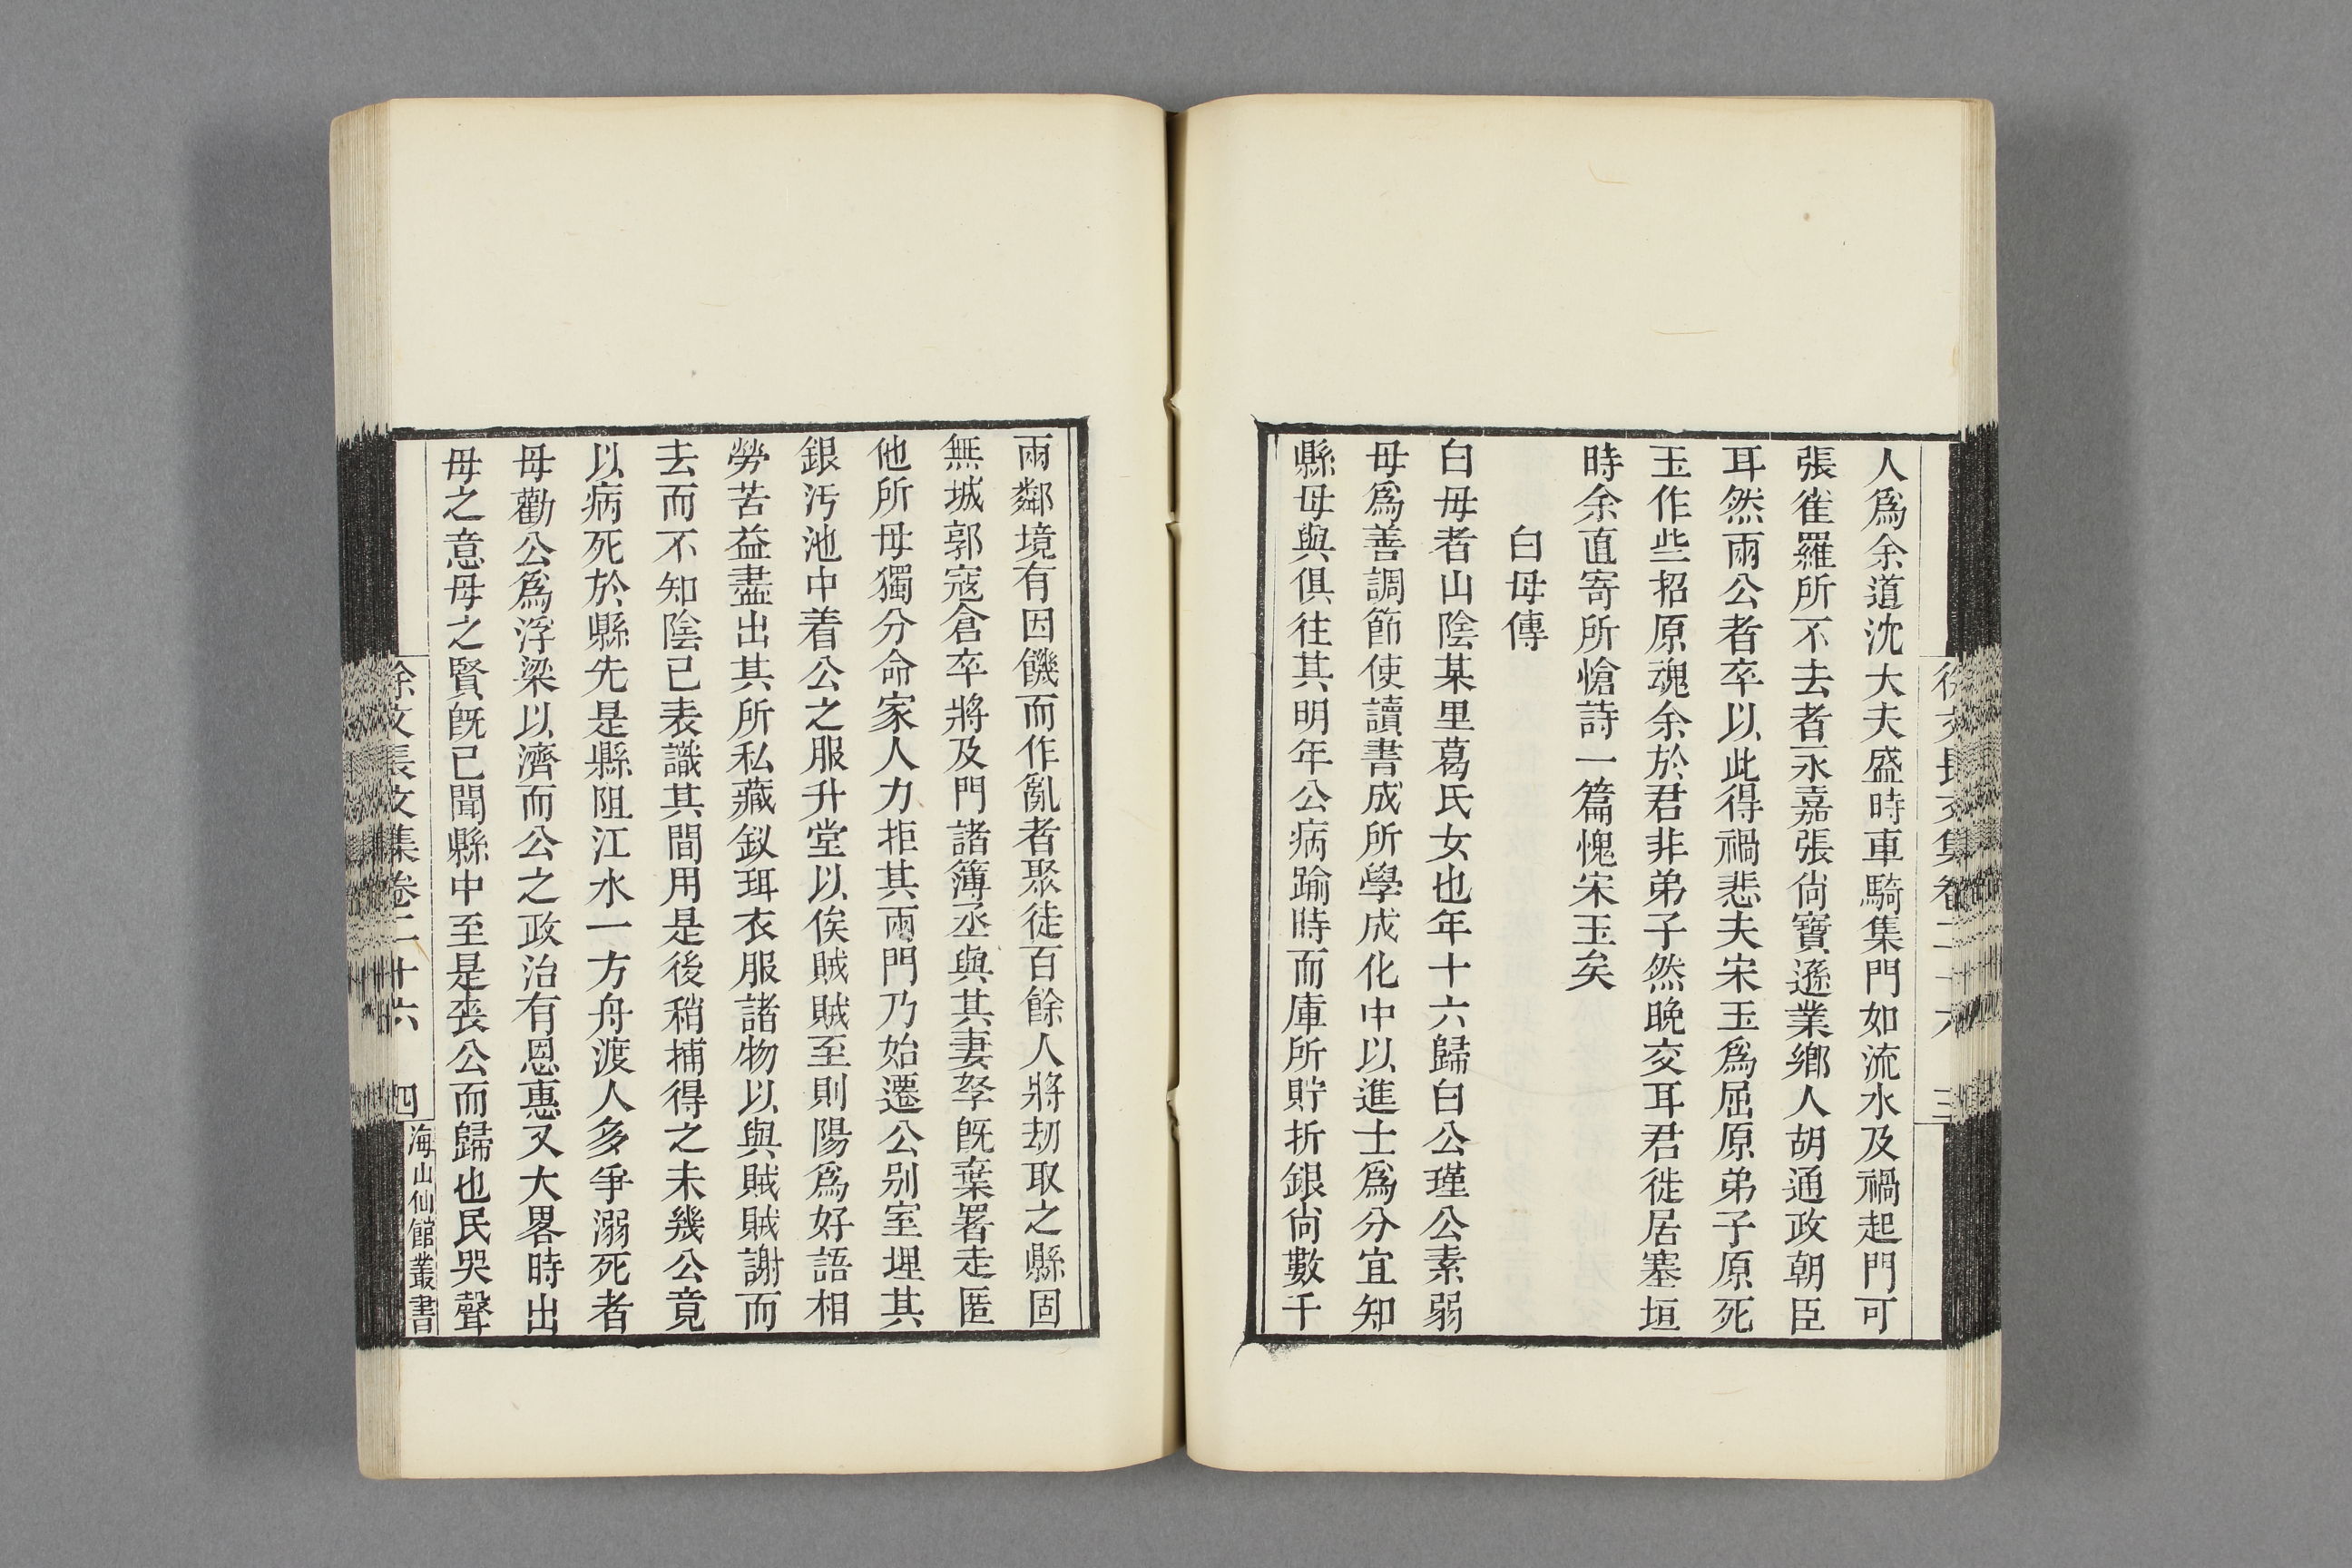 徐文長文集卷二十六 三
人爲余道沈大夫盛時車騎集門如流水及禍起門可
張雀羅所不去者永嘉張尙寶遜業鄕人胡通政朝臣
耳然兩公者卒以此得禍悲夫宋玉爲屈原弟子原死
玉作些招原魂余於君非弟子然晩交耳君徙居塞垣
時余直寄所愴詩一篇愧宋玉矣
白母傳
白母者山陰某里葛氏女也年十六歸白公瑾公素弱
母爲善調節使讀書成所學成化中以進士爲分宜知
縣母與俱往其明年公病踰時而庫所貯折銀尙數千
兩鄰境有因饑而作亂者聚徒百餘人將刼取之縣固
無城郭寇倉卒將及門諸簿丞與其妻孥旣棄署走匿
他所母獨分命家人力拒其兩門乃始遷公别室埋其
銀汚池中着公之服升堂以俟賊賊至則陽爲好語相
勞苦益盡出其所私藏釵珥衣服諸物以與賊賊謝而
去而不知陰已表識其間用是後稍捕得之未幾公竟
以病死於縣先是縣阻江水一方舟渡人多爭溺死者
母勸公爲浮梁以濟而公之政治有恩惠又大畧時出
母之意母之賢旣已聞縣中至是喪公而歸也民哭聲
徐文長文集卷二十六 四
海山仙館叢書